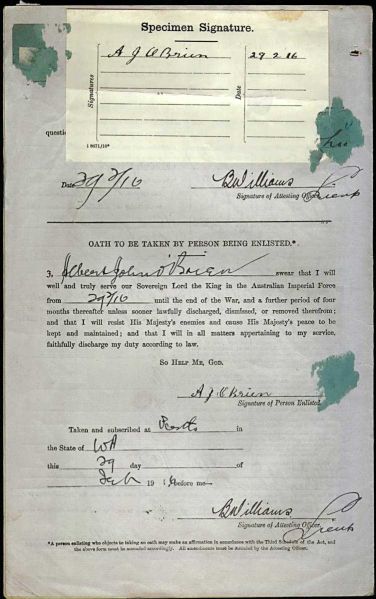 Specimen Signature.
Signatures
A J O'Brien
Date
29 2 16
18671/10*
questi
Date 29/2/16
B Williams
Lieut
Signature of Attesting Officer.
OATH TO BE TAKEN BY PERSON BEING ENLISTED.*
I, Albert John O'Brien swear that I will
well and truly serve our Sovereign Lord the King in the Australian Imperial Force
from 29/2/16 until the end of the War, and a further period of four
months thereafter unless sooner lawfully discharged, dismissed, or removed therefrom; and
that I will resist His Majesty's enemies and cause His Majesty's peace to be
kept and maintained; and that I will in all matters appertaining to my service,
faithfully discharge my duty according to law.
SO HELP ME, GOD.
A J O'Brien
Signature of Person Enlisted.
Taken and subscribed at Perth in
the State of WA
this 29 day of
Feb 1916 before me—
B Williams
Lieut
Signature of Attesting Officer.
*A person enlisting who objects to taking an oath may make an affirmation in accordance with the Third Schedule of the Act, and
the above form must be amended accordingly. All amendments must be initialed by the Attesting Officer.